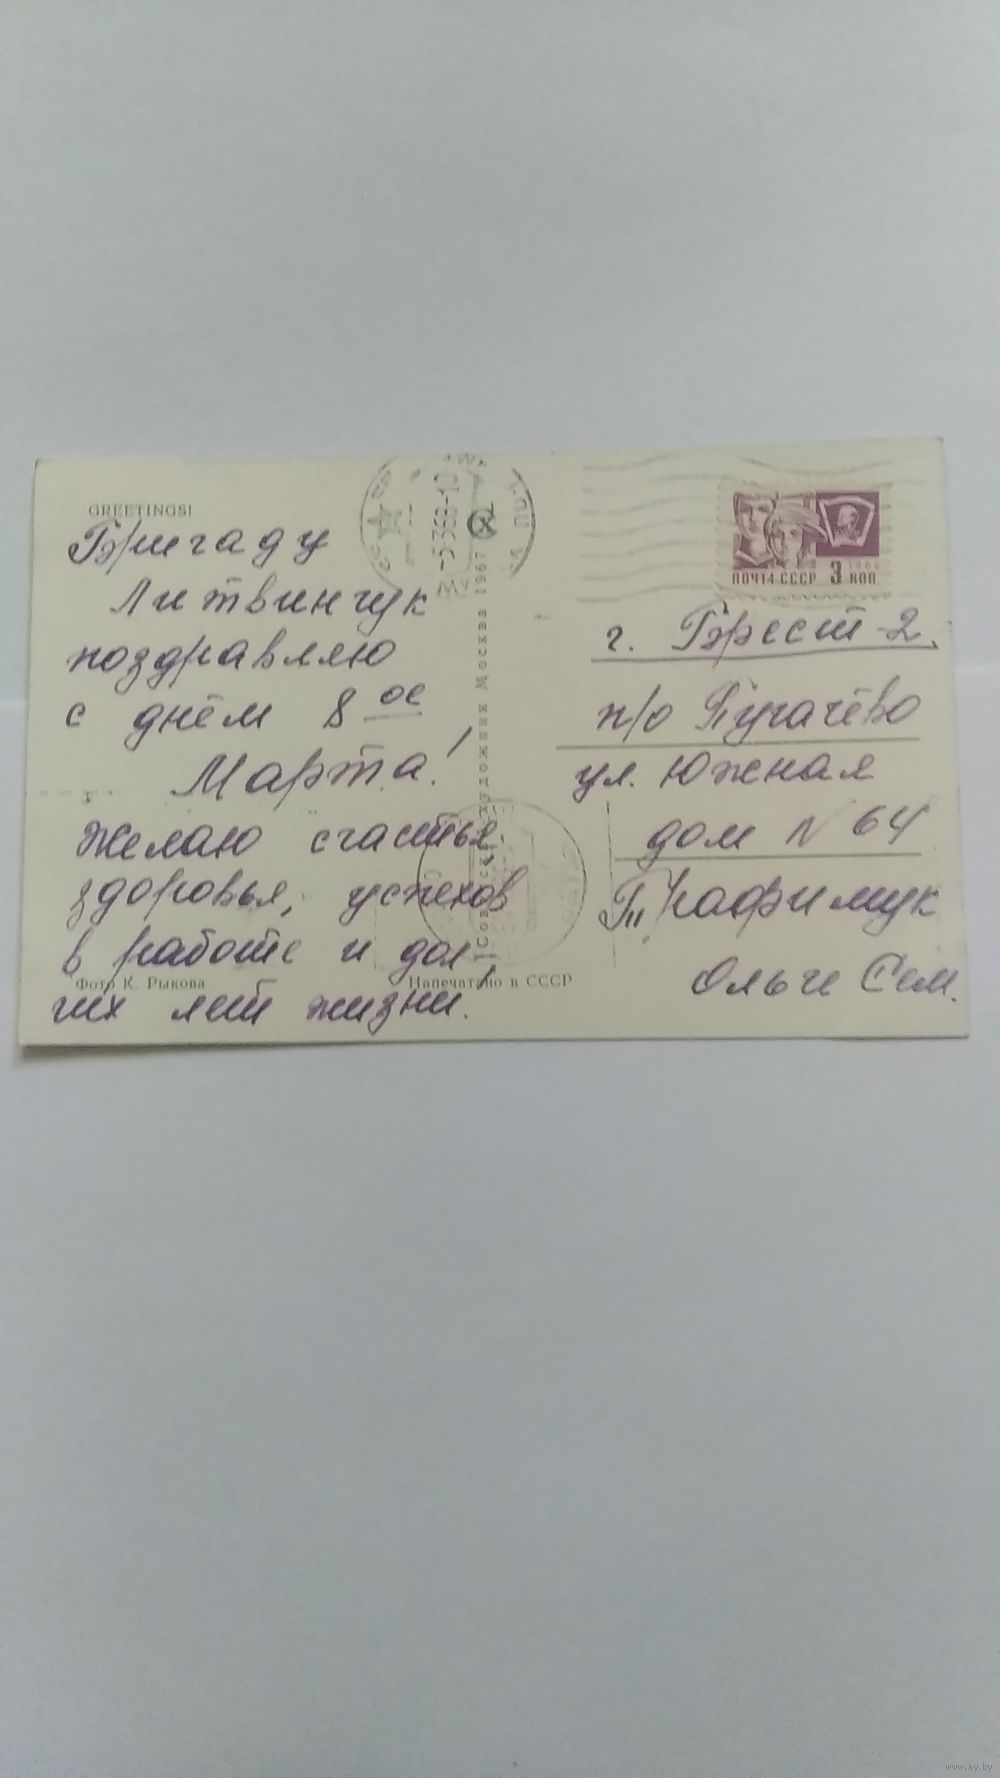 GREETINGS!
Бригаду
Литвинчук
поздравляю
с днём 8 ое
Марта!
Желаю счастья,
здоровья, успехов
в работе и дол-
гих лет жизни.
Фото К. Рыкова
Напечатано в СССР
Советский художник Москва 1967
-5368-10
ПОЧТА СССР 3 КОП.
1966
г. Брест-2.
п/о Пугачёво
ул. Южная
дом N 64
Трафимук
Ольге Сем.
www.ay.by